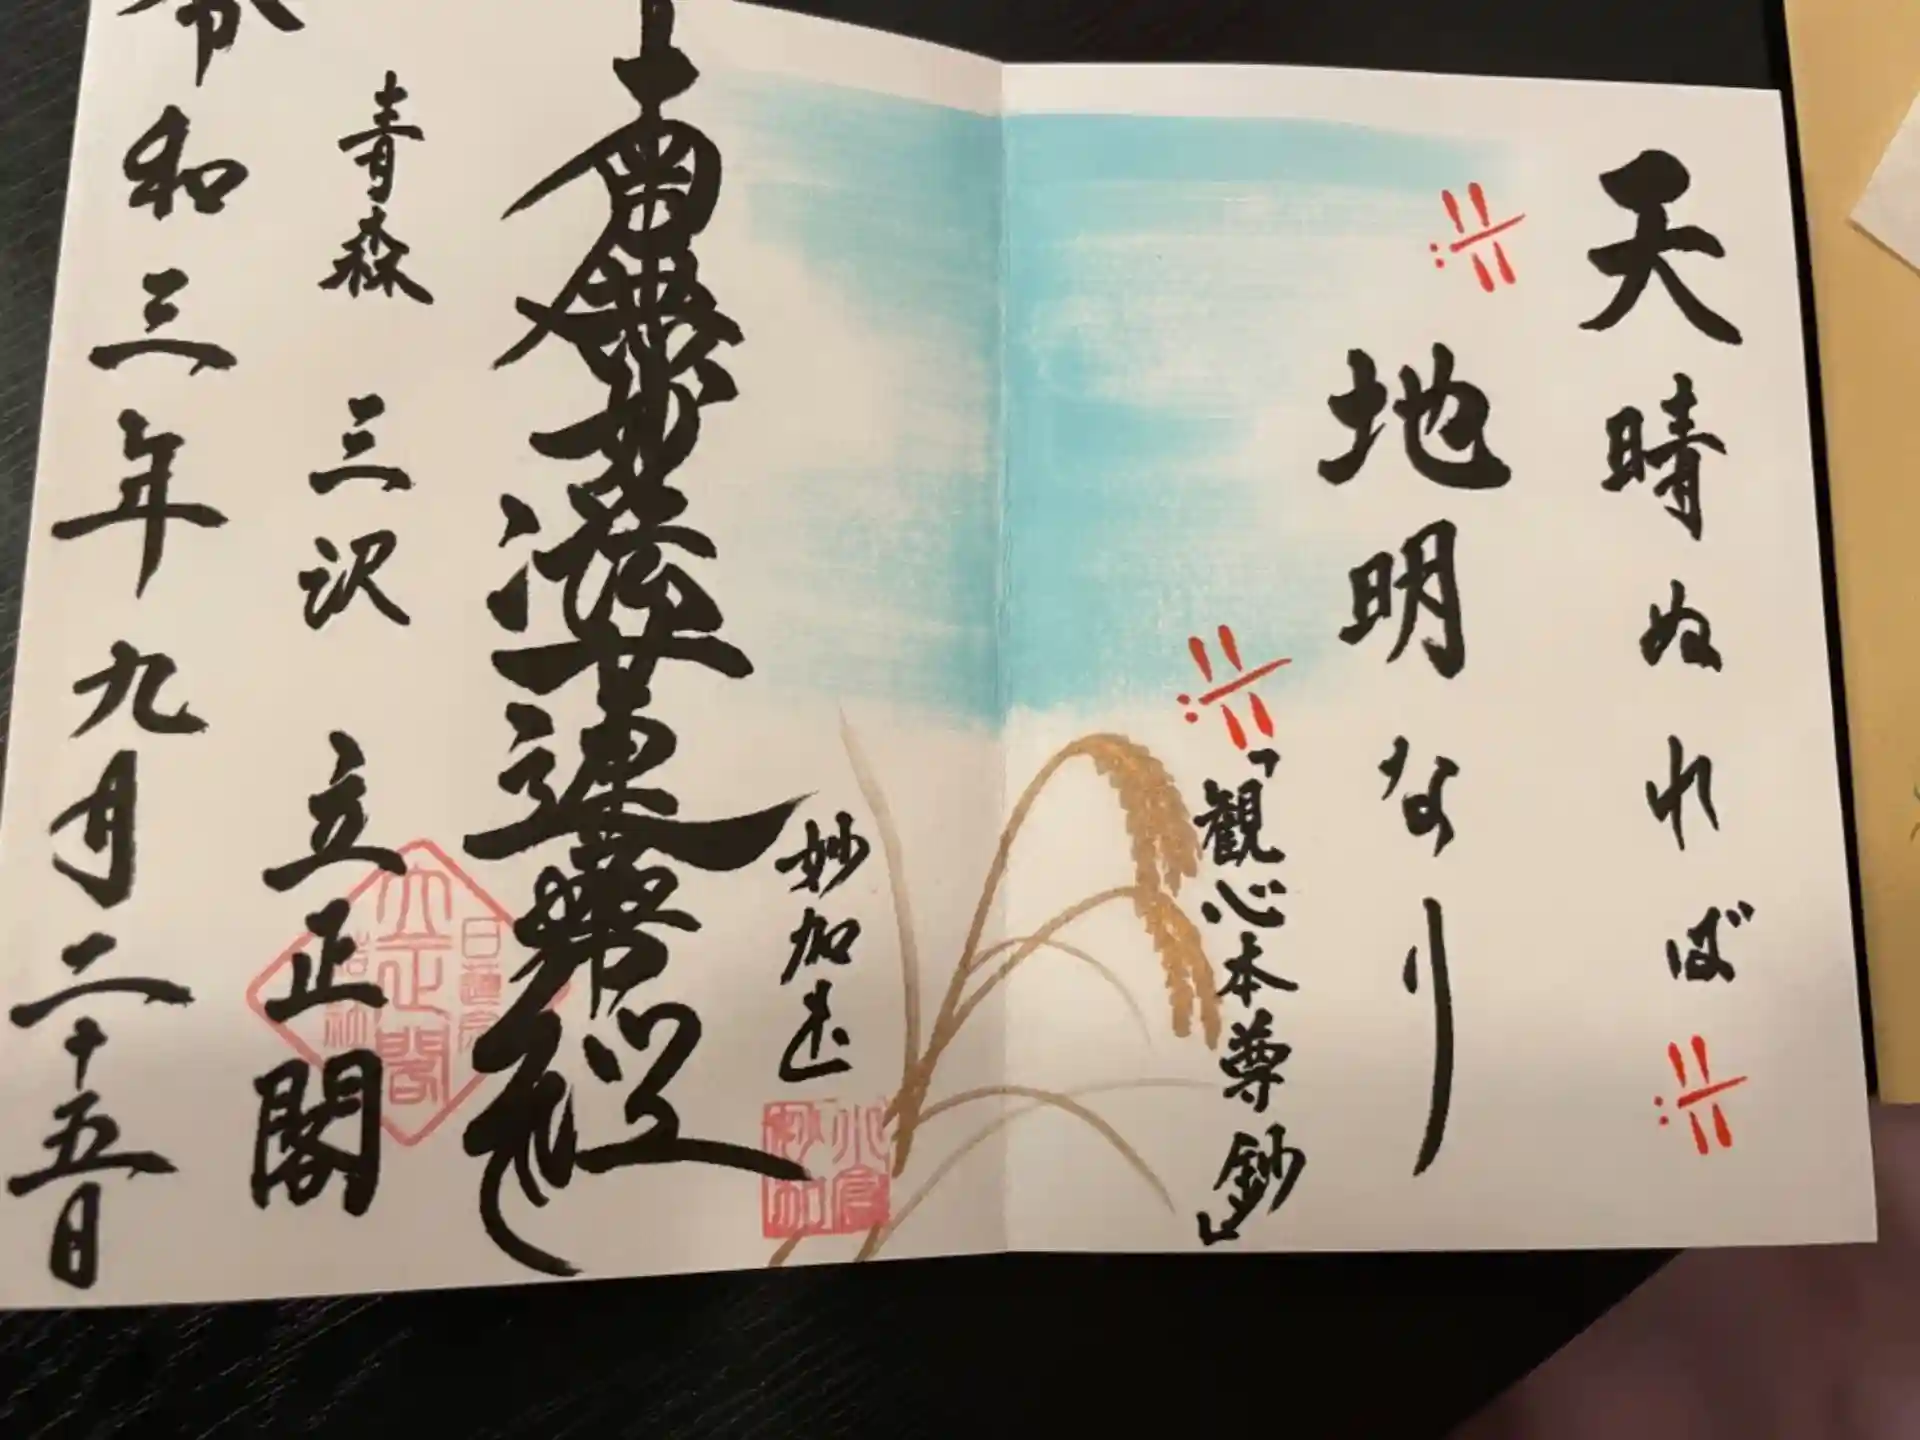 天晴ぬれば
地明なり
「観心本尊鈔」
妙加
南無妙法蓮華経
青森 三沢 立正閣
令和三年九月二十五日
立正閣